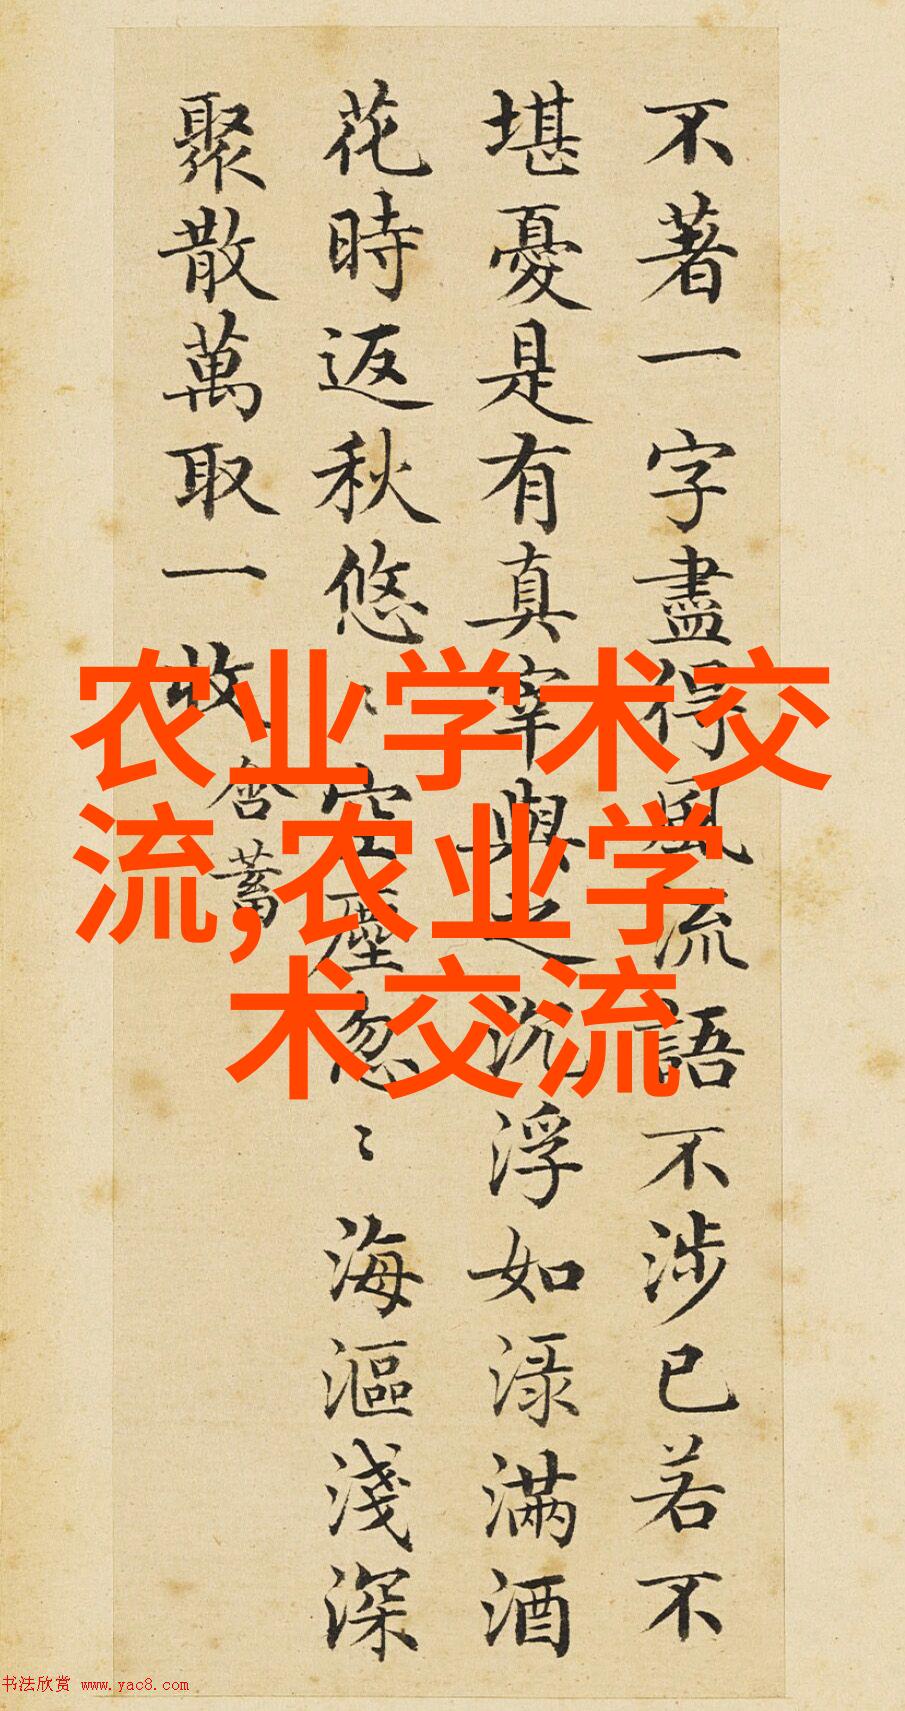 不著一字盡得風流語不涉已若不
堪憂是有真宰與之沉浮如渌滿酒
花時返秋悠〻空塵忽〻海漚淺深
聚散萬取一收
含蓄
农业学术交
流,农业学
术交流
书法欣赏 www.yac8.com